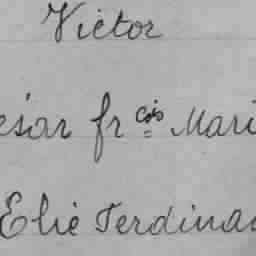 Victor
ésar frçois Mari
Elie Ferdina